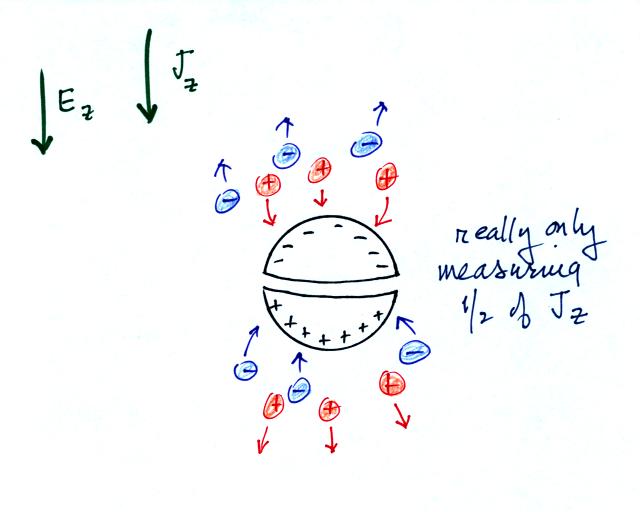 E_z
J_z
really only
measuring
1/2 of J_z